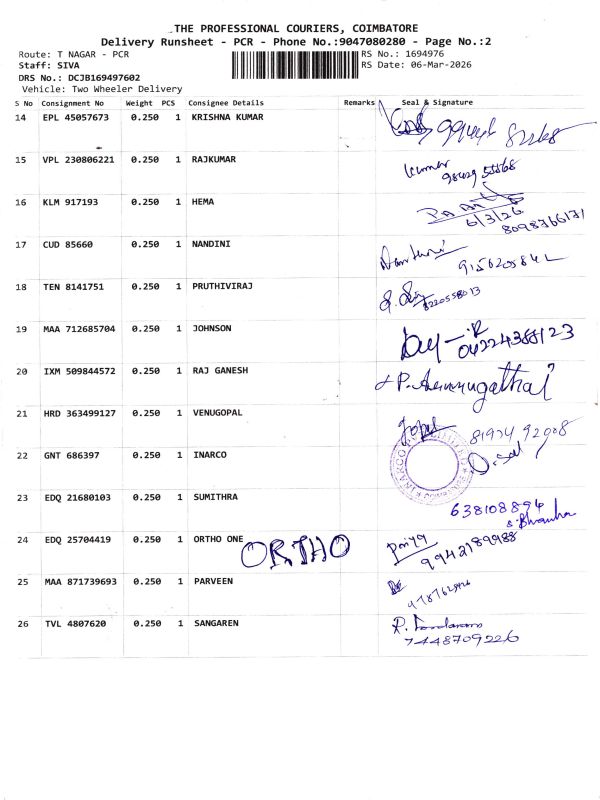 THE PROFESSIONAL COURIERS, COIMBATORE
Delivery Runsheet - PCR - Phone No.:9047080280 - Page No.:2
Route: T NAGAR - PCR RS No.: 1694976
Staff: SIVA RS Date: 06-Mar-2026
DRS No.: DCJB169497602
Vehicle: Two Wheeler Delivery
S No Consignment No Weight PCS Consignee Details Remarks Seal & Signature
14 EPL 45057673 0.250 1 KRISHNA KUMAR
15 VPL 230806221 0.250 1 RAJKUMAR Kumar
16 KLM 917193 0.250 1 HEMA
6/3/26
8098766171
17 CUD 85660 0.250 1 NANDINI
18 TEN 8141751 0.250 1 PRUTHIVIRAJ 8220558013
19 MAA 712685704 0.250 1 JOHNSON
20 IXM 509844572 0.250 1 RAJ GANESH
21 HRD 363499127 0.250 1 VENUGOPAL Gopal
22 GNT 686397 0.250 1 INARCO
23 EDQ 21680103 0.250 1 SUMITHRA 638108894
24 EDQ 25704419 0.250 1 ORTHO ONE ORTHO Priya
9942189988
25 MAA 871739693 0.250 1 PARVEEN
26 TVL 4807620 0.250 1 SANGAREN
7448709226